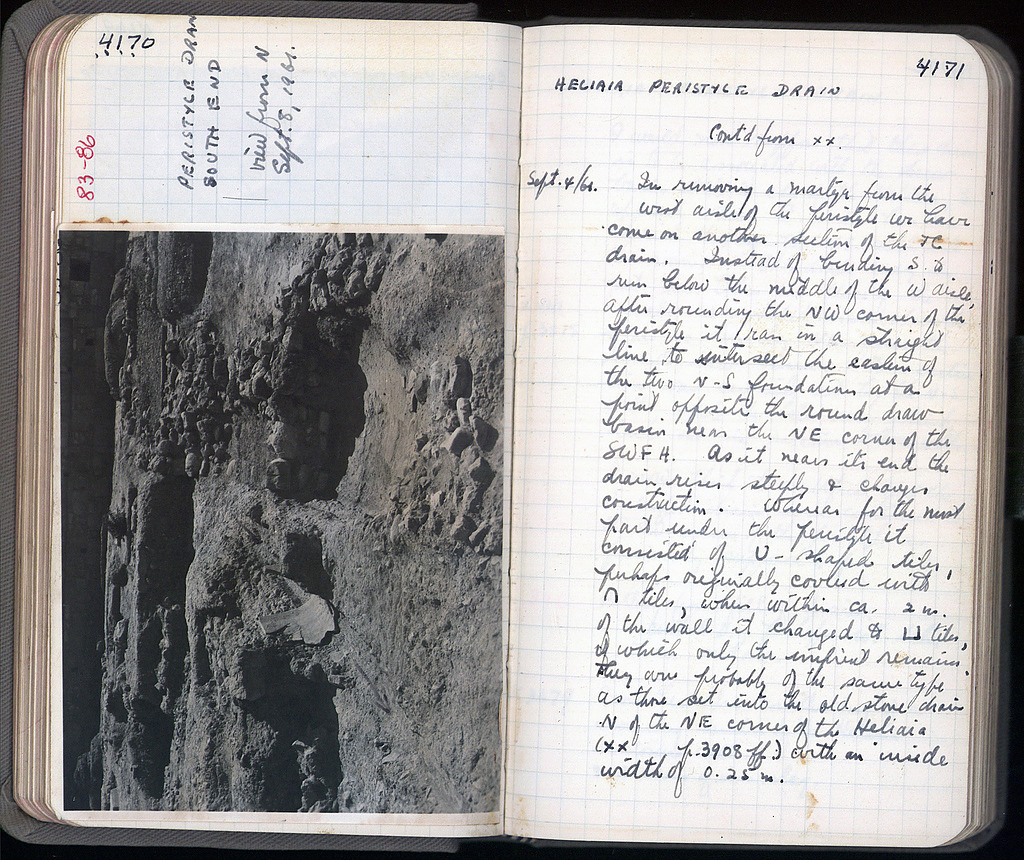 4170
83-86
PERISTYLE DRAIN
SOUTH END
View from N
Sept. 8, 1961.
4171
HELIAIA PERISTYLE DRAIN
Cont'd from xx.
Sept. 4/61. In removing a martyr from the
west aisle of the peristyle we have
come on another section of the TC
drain. Instead of bending S. to
run below the middle of the W aisle,
after rounding the NW corner of the
peristyle it ran in a straight
line to intersect the eastern of
the two N-S foundations at a
point opposite the round draw
basin near the NE corner of the
SWFH. As it nears its end the
drain rises steeply & changes
construction. Whereas for the most
part under the peristyle it
consisted of U-shaped tiles,
perhaps originally covered with
∩ tiles, when within ca. 2 m.
of the wall it changed to ⊔ tiles,
of which only the imprint remains.
They were probably of the same type
as those set into the old stone drain
N of the NE corner of the Heliaia
(xx p. 3908 ff.) with an inside
width of 0.25 m.